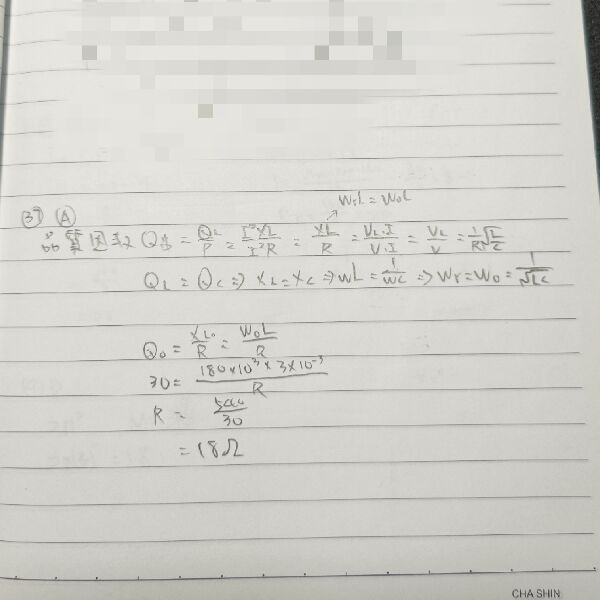 WrL = WoL
㊲ Ⓐ
品質因數 Q串 = QL/P = I²XL/I²R = XL/R = VL·I/V·I = VL/V = 1/R √L/C
QL = QC ⇒ XL = XC ⇒ WL = 1/WC ⇒ Wr = Wo = 1/√LC
Qo = XLo/R = WoL/R
30 = 180×10³×3×10⁻³/R
R = /30
= 18Ω
CHA SHIN